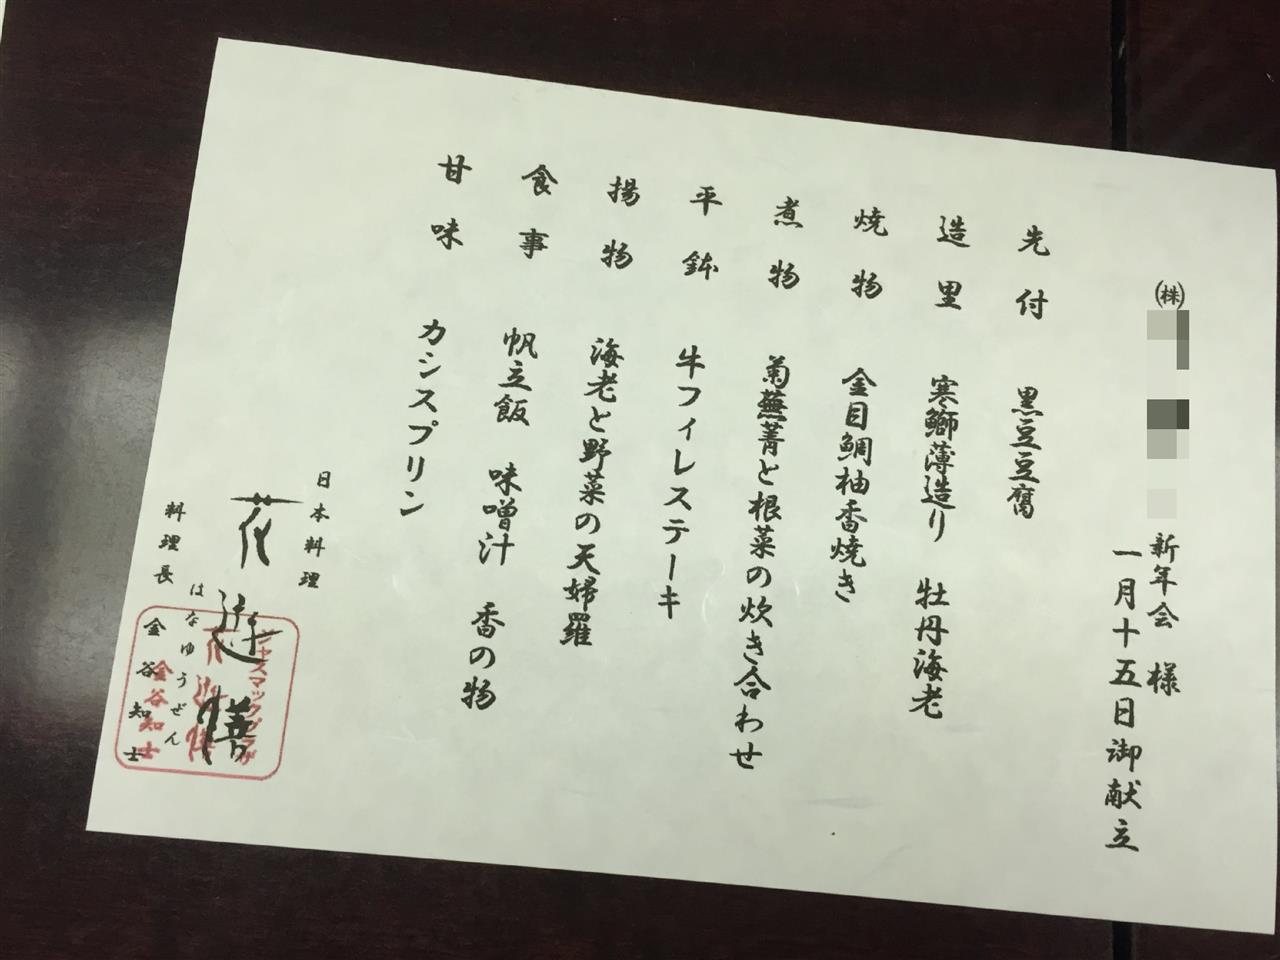 ㈱ 新年会 様
一月十五日御献立
先付 黒豆豆腐
造里 寒鰤薄造り 牡丹海老
焼物 金目鯛柚香焼き
煮物 菊蕪菁と根菜の炊き合わせ
平鉢 牛フィレステーキ
揚物 海老と野菜の天婦羅
食事 帆立飯 味噌汁 香の物
甘味 カシスプリン
日本料理
花遊膳
はなゆうぜん
料理長 金谷知士
ジャスマックプラザ
花遊膳
金谷知士